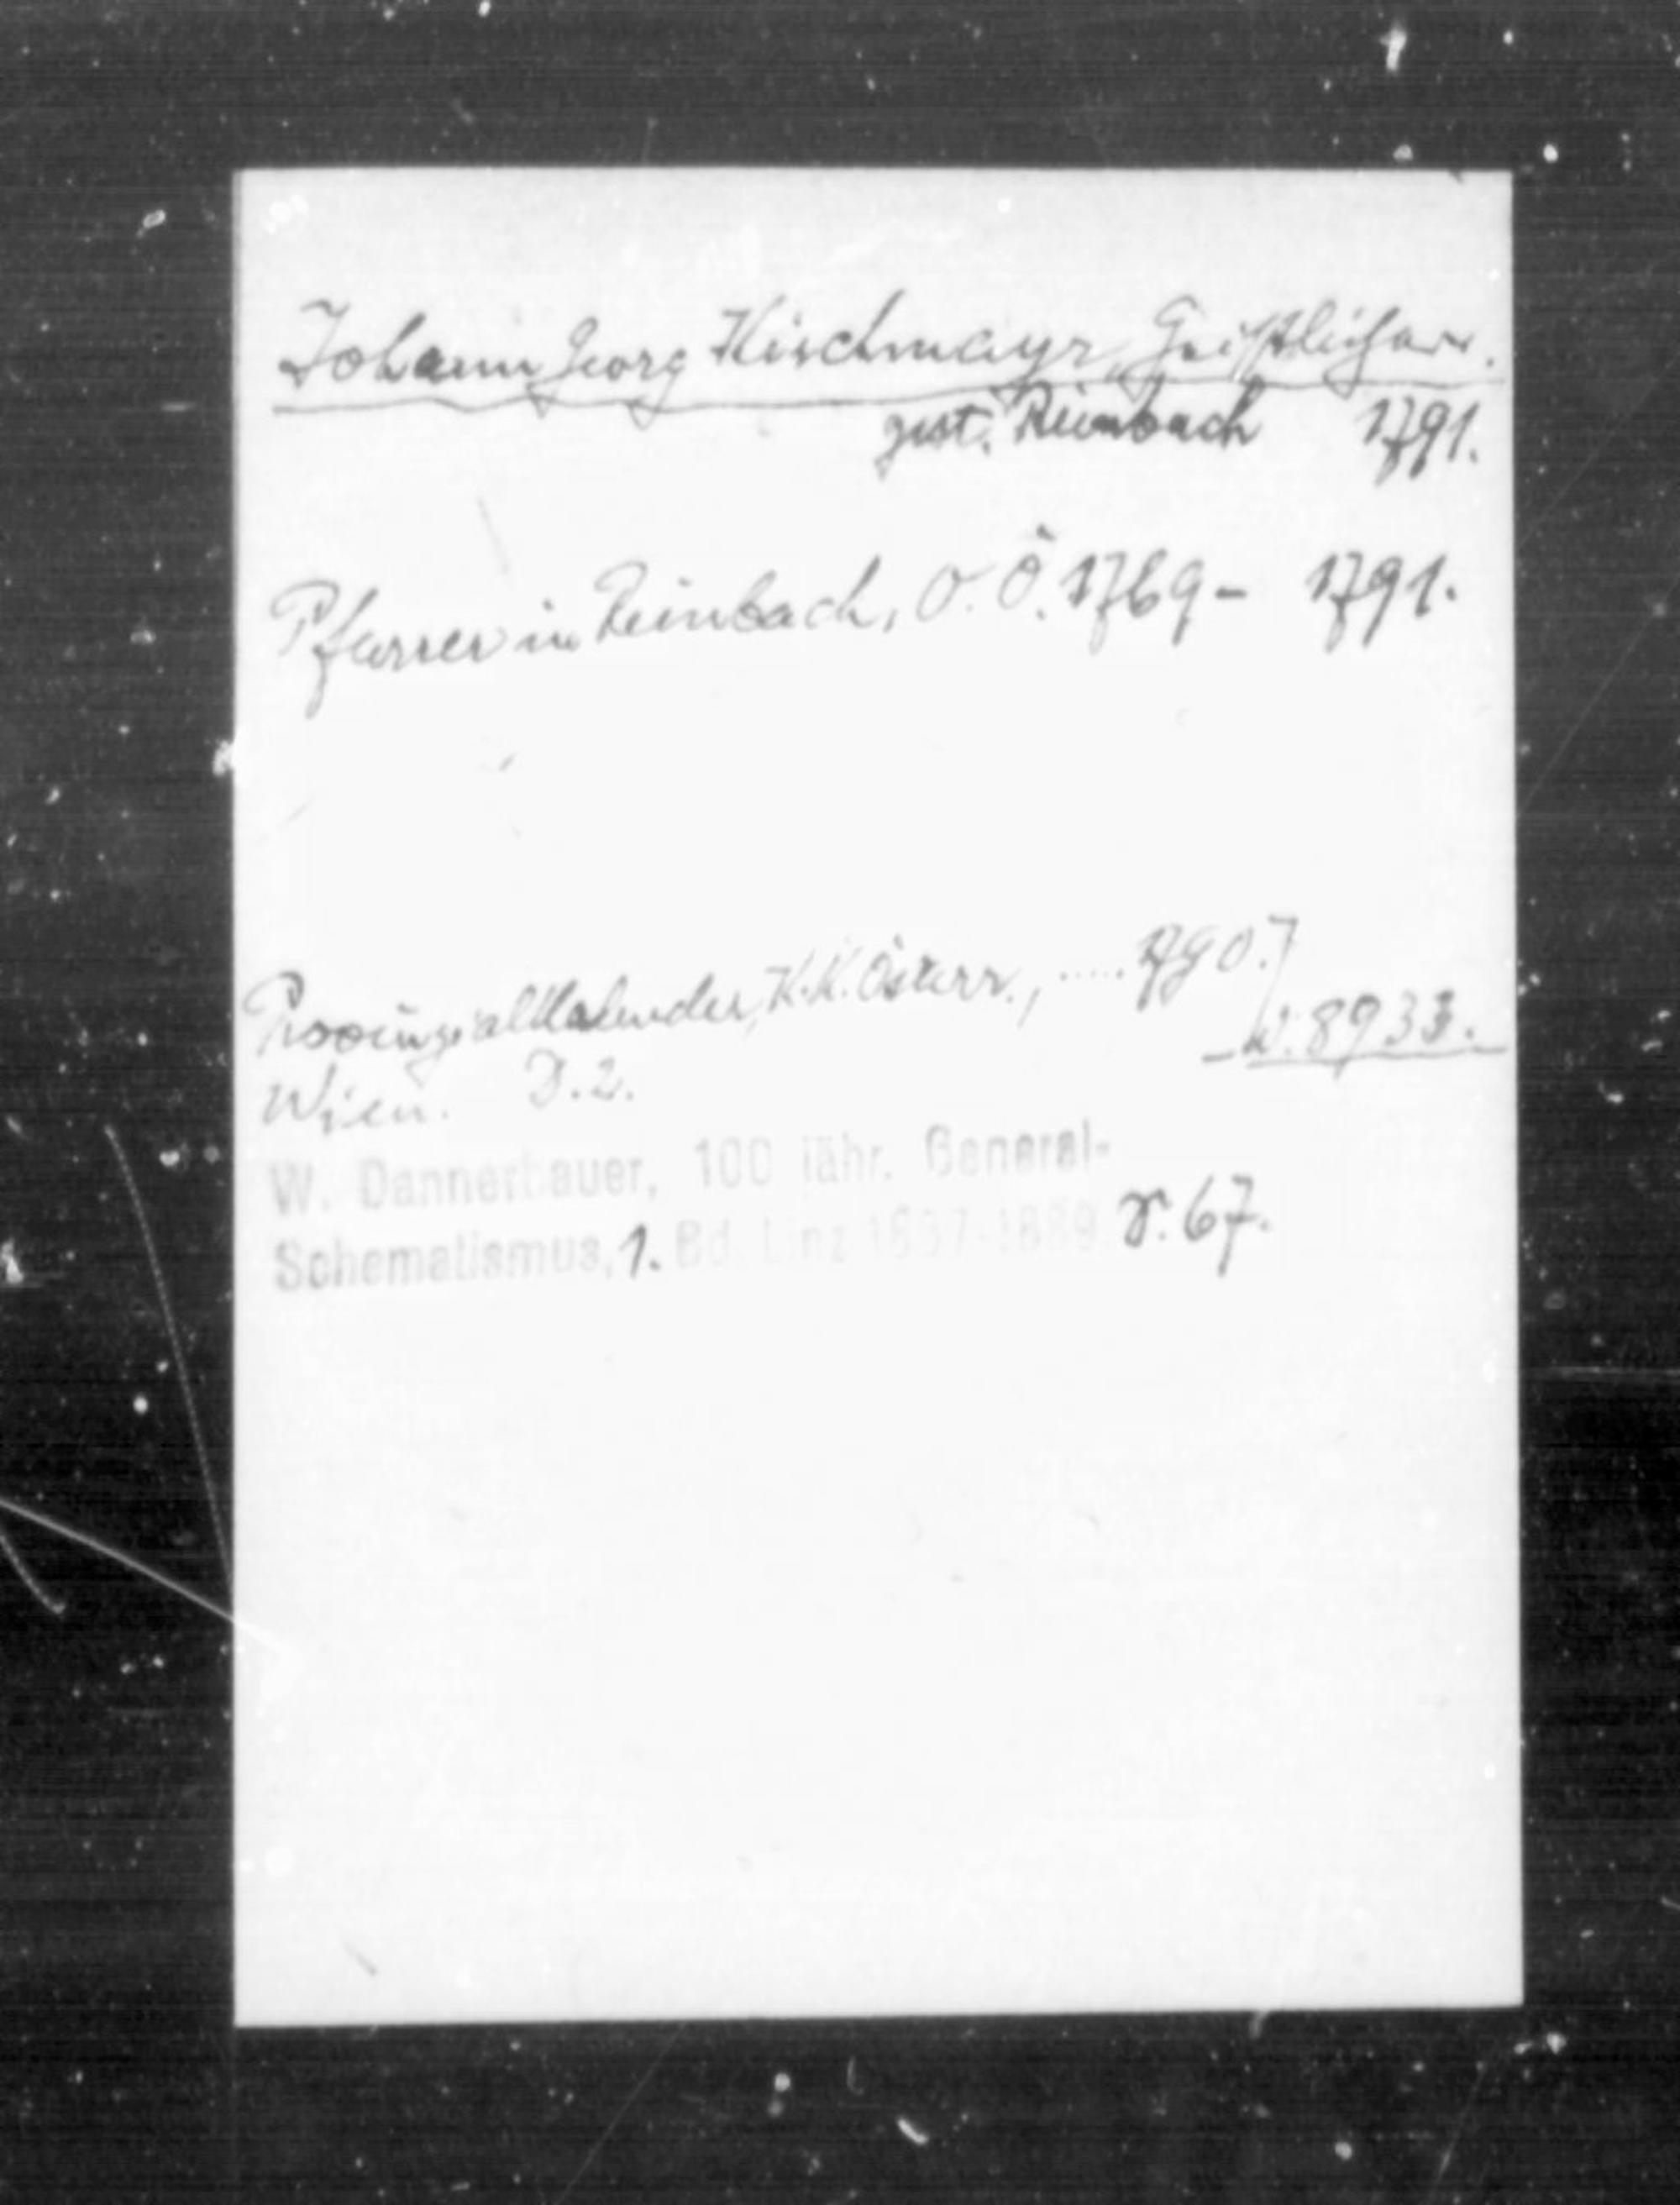 Johann Georg Kirchmayr, Geistlicher.
gest. Reinbach 1791.
Pfarrer in Reinbach, O. Ö. 1769- 1791.
Provinzialkalender, K.K. Österr., ..... 1790.
8933.
Wien. D.2.
W. Dannerbauer, 100 jähr. General-
Schematismus, 1. Bd. Linz 1887-1889 S. 67.